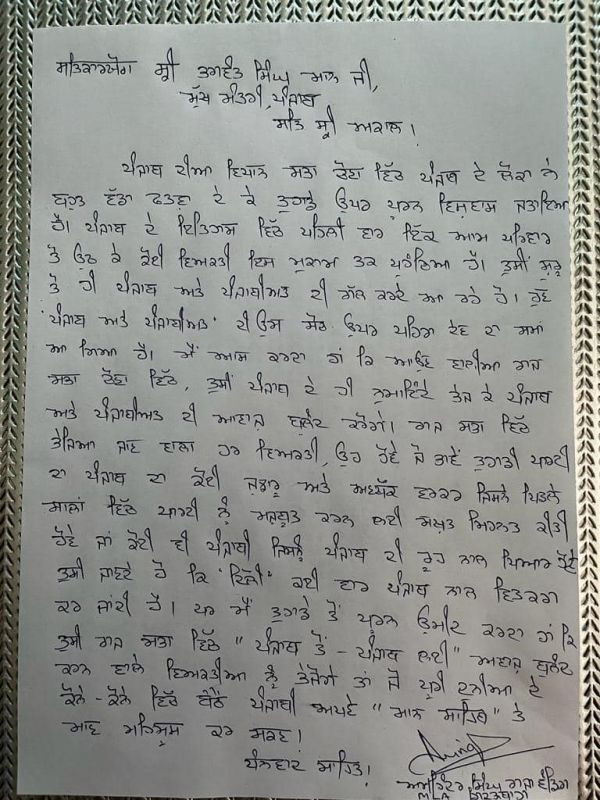 ਸਤਿਕਾਰਯੋਗ ਸ੍ਰੀ ਭਗਵੰਤ ਸਿੰਘ ਮਾਨ ਜੀ,
ਮੁੱਖ ਮੰਤਰੀ, ਪੰਜਾਬ
ਸਤਿ ਸ੍ਰੀ ਅਕਾਲ।
ਪੰਜਾਬ ਦੀਆ ਵਿਧਾਨ ਸਭਾ ਚੋਣਾ ਵਿੱਚ ਪੰਜਾਬ ਦੇ ਲੋਕਾ ਨੇ
ਬਹੁਤ ਵੱਡਾ ਫਤਵਾ ਦੇ ਕੇ ਤੁਹਾਡੇ ਉਪਰ ਪੂਰਨ ਵਿਸ਼ਵਾਸ ਜਤਾਇਆ
ਹੈ। ਪੰਜਾਬ ਦੇ ਇਤਿਹਾਸ ਵਿੱਚ ਪਹਿਲੀ ਵਾਰ ਇੱਕ ਆਮ ਪਰਿਵਾਰ
ਤੋਂ ਉਠ ਕੇ ਕੋਈ ਵਿਅਕਤੀ ਇਸ ਮੁਕਾਮ ਤਕ ਪਹੁੰਚਿਆ ਹੈ। ਤੁਸੀਂ ਸ਼ੁਰੂ
ਤੋਂ ਹੀ ਪੰਜਾਬ ਅਤੇ ਪੰਜਾਬੀਅਤ ਦੀ ਗੱਲ ਕਰਦੇ ਆ ਰਹੇ ਹੋ। ਹੁਣ
'ਪੰਜਾਬ ਅਤੇ ਪੰਜਾਬੀਅਤ' ਦੀ ਉਸ ਸੋਚ ਉਪਰ ਪਹਿਰਾ ਦੇਣ ਦਾ ਸਮਾਂ
ਆ ਗਿਆ ਹੈ। ਮੈਂ ਆਸ ਕਰਦਾ ਹਾਂ ਕਿ ਆਉਣ ਵਾਲੀਆ ਰਾਜ
ਸਭਾ ਚੋਣਾ ਵਿੱਚ, ਤੁਸੀਂ ਪੰਜਾਬ ਦੇ ਹੀ ਨੁਮਾਇੰਦੇ ਭੇਜ ਕੇ ਪੰਜਾਬ
ਅਤੇ ਪੰਜਾਬੀਅਤ ਦੀ ਆਵਾਜ਼ ਬੁਲੰਦ ਕਰੋਗੇ। ਰਾਜ ਸਭਾ ਵਿੱਚ
ਭੇਜਿਆ ਜਾਣ ਵਾਲਾ ਹਰ ਵਿਅਕਤੀ, ਉਹ ਹੋਵੇ ਜੋ ਭਾਵੇਂ ਤੁਹਾਡੀ ਪਾਰਟੀ
ਦਾ ਪੰਜਾਬ ਦਾ ਕੋਈ ਜੁਝਾਰੂ ਅਤੇ ਅਣਥੱਕ ਵਰਕਰ ਜਿਸਨੇ ਪਿਛਲੇ
ਸਾਲਾਂ ਵਿੱਚ ਪਾਰਟੀ ਨੂੰ ਮਜਬੂਤ ਕਰਨ ਲਈ ਸਖ਼ਤ ਮਿਹਨਤ ਕੀਤੀ
ਹੋਵੇ ਜਾਂ ਕੋਈ ਵੀ ਪੰਜਾਬੀ ਜਿਸਨੂੰ ਪੰਜਾਬ ਦੀ ਰੂਹ ਨਾਲ ਪਿਆਰ ਹੋਵੇ
ਤੁਸੀ ਜਾਣਦੇ ਹੋ ਕਿ 'ਦਿੱਲੀ' ਕਈ ਵਾਰ ਪੰਜਾਬ ਨਾਲ ਵਿਤਕਰਾ
ਕਰ ਜਾਂਦੀ ਹੈ। ਪਰ ਮੈਂ ਤੁਹਾਡੇ ਤੋਂ ਪੂਰਨ ਉਮੀਦ ਕਰਦਾ ਹਾਂ ਕਿ
ਤੁਸੀ ਰਾਜ ਸਭਾ ਵਿੱਚ "ਪੰਜਾਬ ਤੋਂ - ਪੰਜਾਬ ਲਈ" ਅਵਾਜ਼ ਬੁਲੰਦ
ਕਰਨ ਵਾਲੇ ਵਿਅਕਤੀਆ ਨੂੰ ਭੇਜੋਗੇ ਤਾਂ ਜੋ ਪੂਰੀ ਦੁਨੀਆ ਦੇ
ਕੋਨੇ - ਕੋਨੇ ਵਿੱਚ ਬੈਠੇ ਪੰਜਾਬੀ ਅਪਣੇ "ਮਾਨ ਸਾਹਿਬ" ਤੇ
ਮਾਣ ਮਹਿਸੂਸ ਕਰ ਸਕਣ।
ਧੰਨਵਾਦ ਸਹਿਤ।
ਅਮਰਿੰਦਰ ਸਿੰਘ ਰਾਜਾ ਵੜਿੰਗ
MLA ਗਿੱਦੜਬਾਹਾ